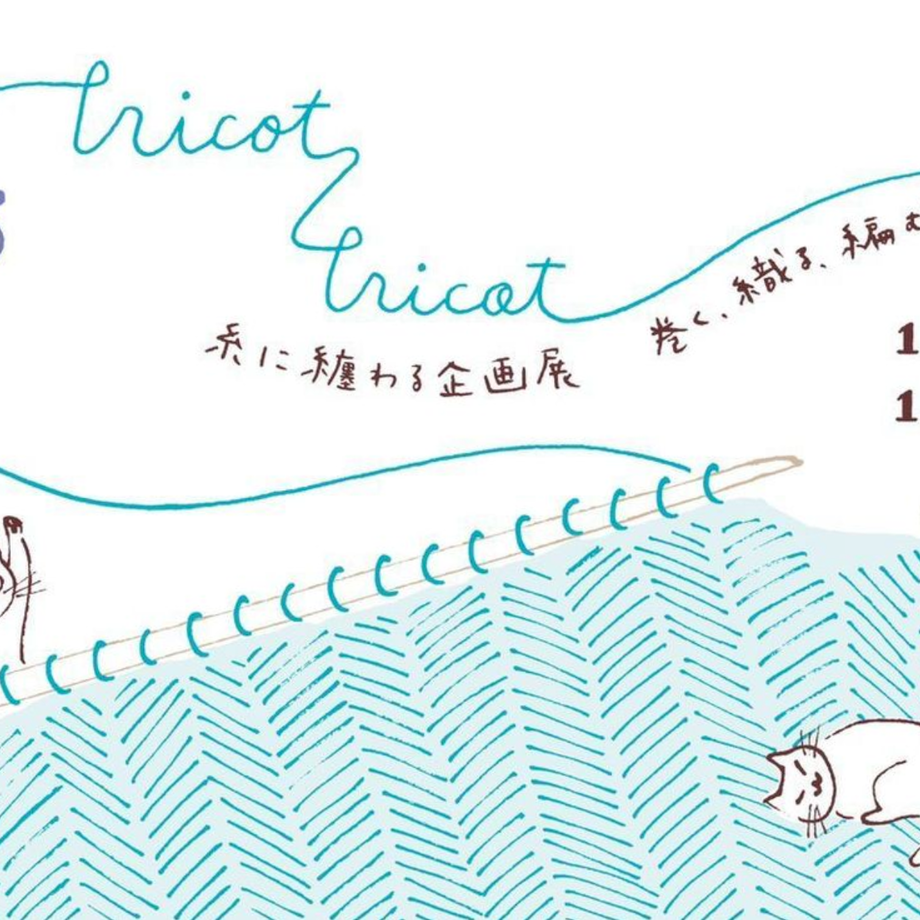 tricot
tricot
糸に纏わる企画展
巻く、織る、編む
1
1